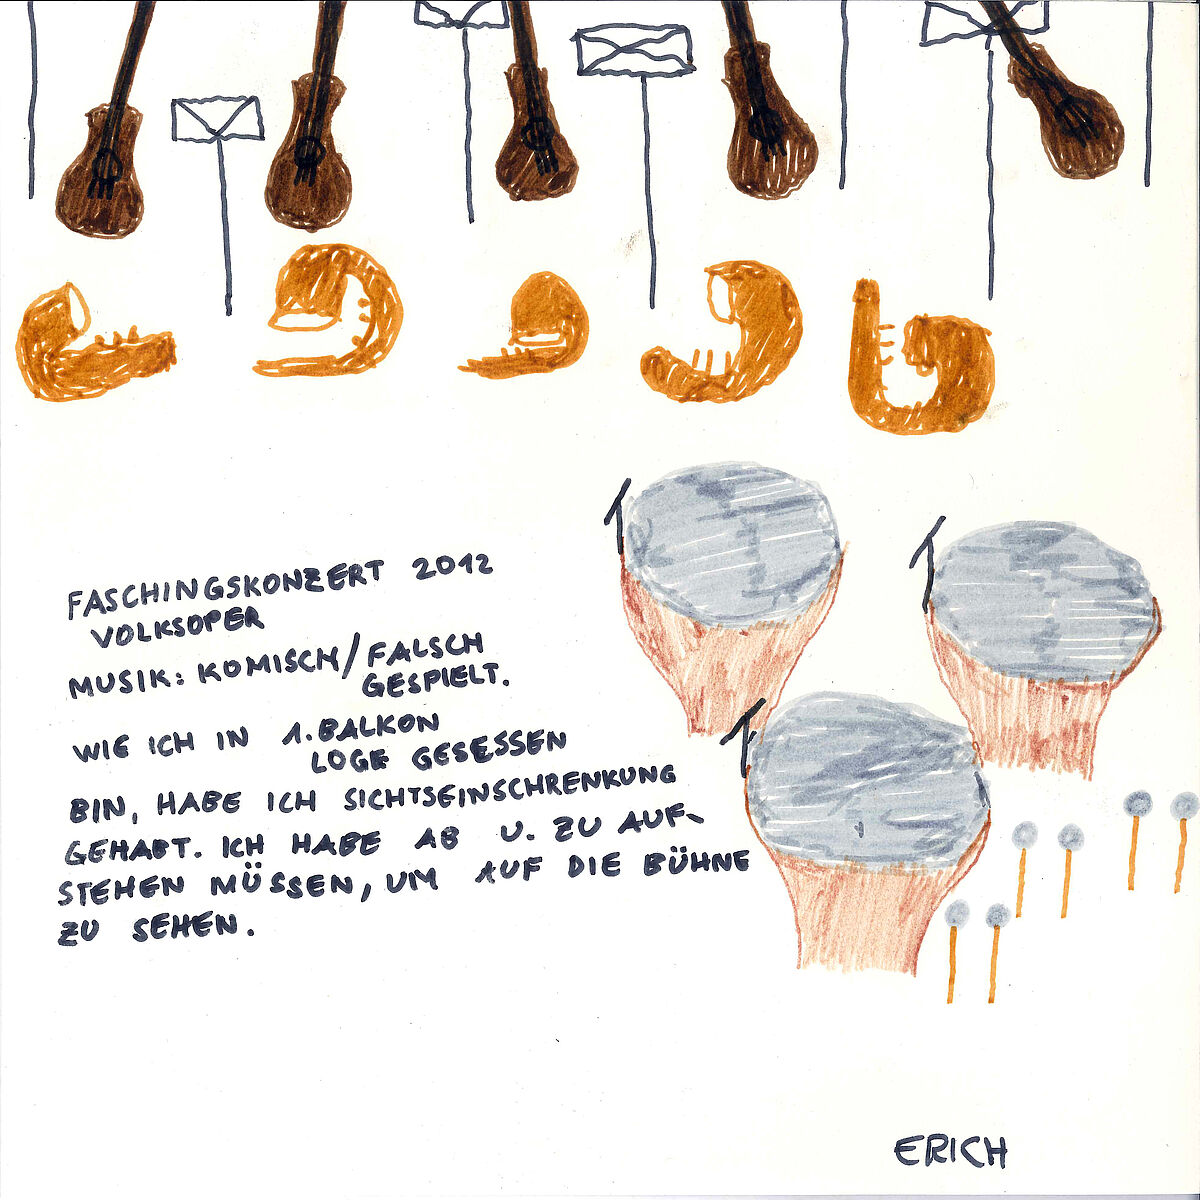 FASCHINGSKONZERT 2012
VOLKSOPER
MUSIK: KOMISCH/FALSCH
GESPIELT.
WIE ICH IN 1. BALKON
LOGE GESESSEN
BIN, HABE ICH SICHTSEINSCHRENKUNG
GEHABT. ICH HABE AB U. ZU AUF-
STEHEN MÜSSEN, UM AUF DIE BÜHNE
ZU SEHEN.
ERICH